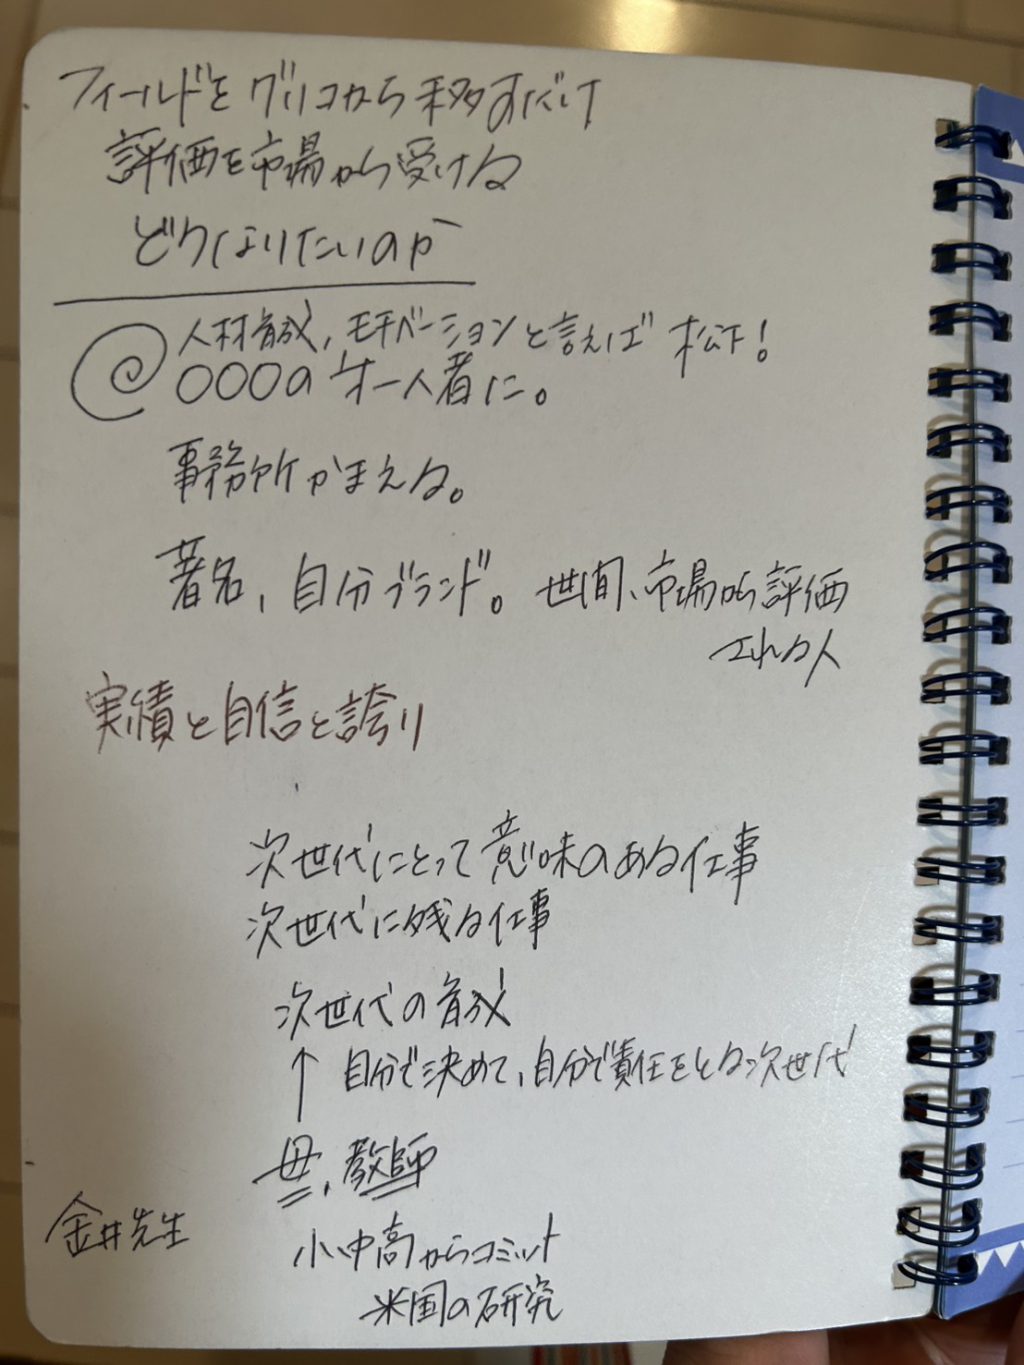 フィールドをグリコから移すだけ
評価を市場から受ける
どうなりたいのか
人材育成、モチベーションと言えば 松下!
〇〇〇の 才一人者に。
事務所かまえる。
著名、自分ブランド。世間、市場から評価
される人
実績と自信と誇り
次世代にとって意味のある仕事
次世代に残る仕事
次世代の育成
↑ 自分で決めて、自分で責任をとる次世代
母、教師
金井先生
小中高からコミット
米国の研究